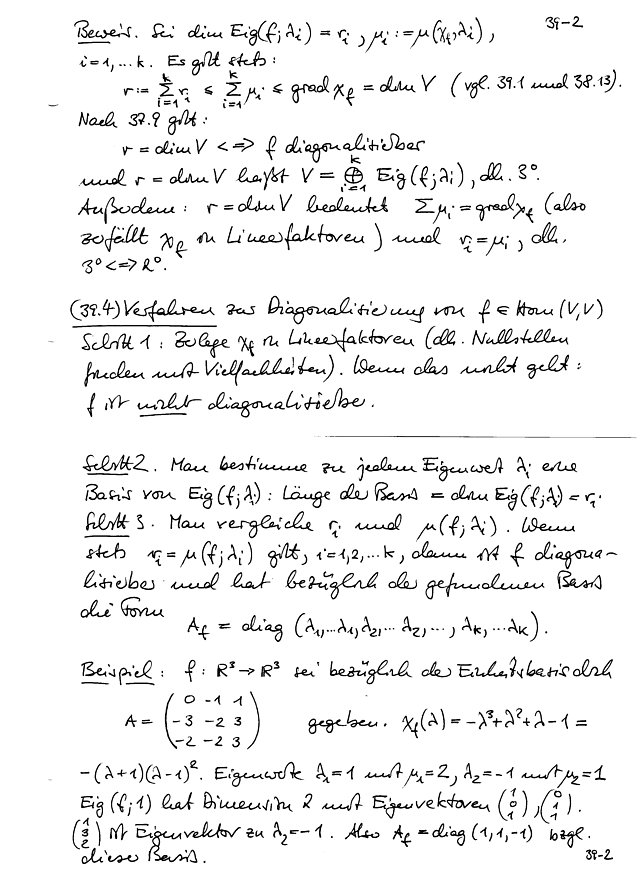 39-2
Beweis. Sei dim Eig(f;λᵢ) = rᵢ, μᵢ := μ(χ_f,λᵢ),
i=1,...k. Es gilt stets:
r := ∑_{i=1}^{k} rᵢ ≤ ∑_{i=1}^{k} μᵢ ≤ grad χ_f = dim V (vgl. 39.1 und 38.13).
Nach 37.9 gilt:
r = dim V <=> f diagonalisierbar
und r = dim V heißt V = ⊕_{i=1}^{k} Eig(f;λᵢ), dh. 3°.
Außerdem: r = dim V bedeutet ∑μᵢ = grad χ_f (also
zerfällt χ_f in Linearfaktoren) und rᵢ = μᵢ, dh.
3° <=> 2°.
(39.4) Verfahren zur Diagonalisierung von f ∈ Hom(V,V)
Schritt 1: Zerlege χ_f in Linearfaktoren (dh. Nullstellen
finden mit Vielfachheiten). Wenn das nicht geht:
f ist nicht diagonalisierbar.
Schritt 2. Man bestimme zu jedem Eigenwert λᵢ eine
Basis von Eig(f;λᵢ): Länge der Basis = dim Eig(f;λᵢ) = rᵢ.
Schritt 3. Man vergleiche rᵢ und μ(f;λᵢ). Wenn
stets rᵢ = μ(f;λᵢ) gilt, i=1,2,...k, dann ist f diagona-
lisierbar und hat bezüglich der gefundenen Basis
die Form
A_f = diag (λ₁,...λ₁,λ₂,...λ₂,...,λ_k,...λ_k).
Beispiel: f: ℝ³ → ℝ³ sei bezüglich der Einheitsbasis dch
A = (0 -1 1
-3 -2 3
-2 -2 3) gegeben. χ_f(λ) = -λ³+λ²+λ-1 =
-(λ+1)(λ-1)². Eigenwerte λ₁=1 mit μ₁=2, λ₂=-1 mit μ₂=1
Eig(f;1) hat Dimension 2 mit Eigenvektoren (1 0 1), (0 1 1).
(1 3 2) ist Eigenvektor zu λ₂=-1. Also A_f = diag(1,1,-1) bzgl.
dieser Basis.
39-2